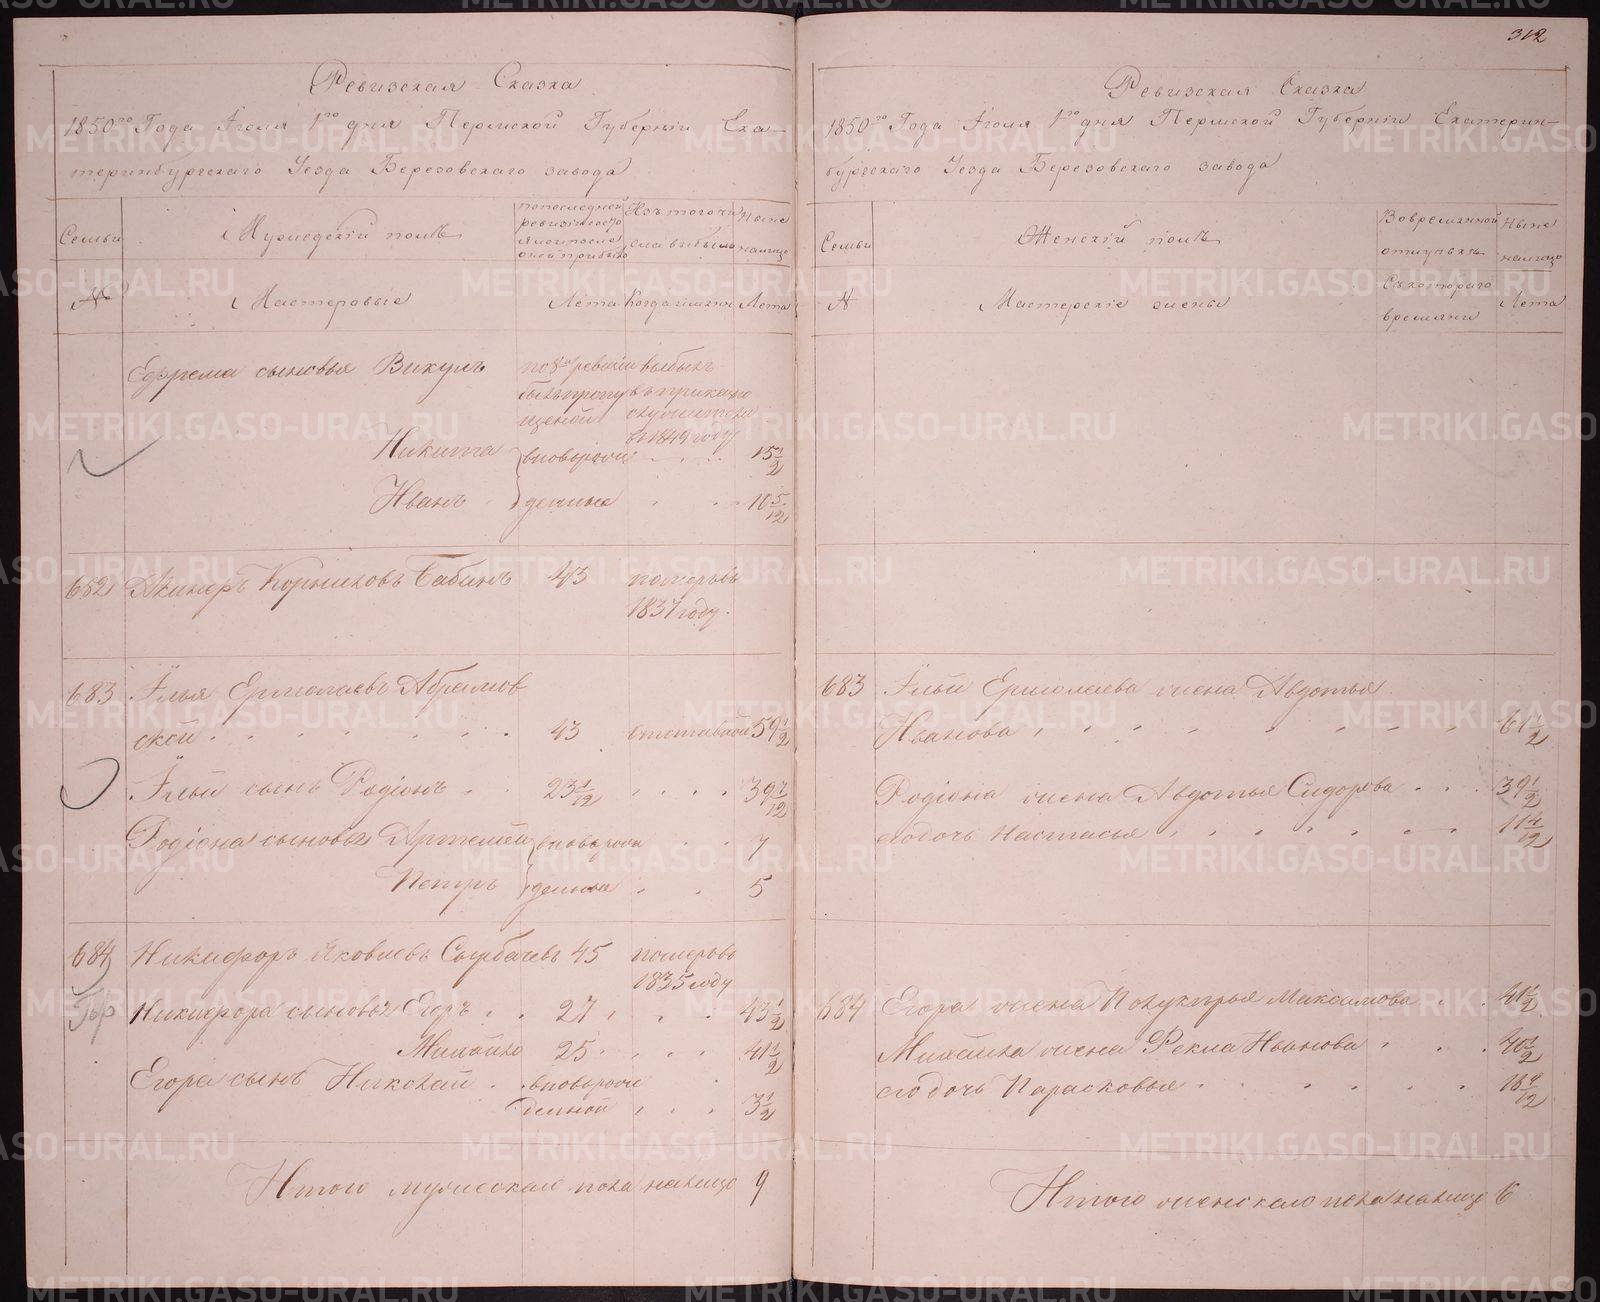 312
Ревизская Сказка
1850го Года Iюля 1го дня Пермской Губернiи Ека-
теринбургскаго Уезда Березовскаго завода
Семьи
Мужедскiй полъ
по последней ревизiи
Изъ того числа выбыло
Ныне налицо
№
Мастеровые
Лета
Когда именно
Лета
Ефрема сыновья Викулъ
по 8й ревизiи былъ пропущеной
выбылъ
въ 1849 году
Никита
вноворож
15 1/2
Иванъ
денные
10 5/12
682 Корниловъ Бабинъ 43 померъ въ
1837 году.
683 Илья Ермолаевъ Абрамов
ской 43 в отставкой 59 1/2
Ильи сынъ Родiонъ 23 1/12 39 7/12
Родiона сыновья Артемей вноворож 7
Петръ денные 5
684 Никифоръ Яковлевъ 45 померъ въ
1835 году
Никифора сыновья Егоръ 27 43 1/2
Михайло 25 41 1/2
Егора сынъ Николай вноворож
денной 3 1/2
Итого мужескаго пола налицо 9
Ревизская Сказка
1850го Года Iюля 1го дня Пермской Губернiи Екатерин-
бургскаго Уезда Березовскаго завода
Семьи
Женскiй полъ
Во временной отлучкъ
Ныне налицо
№
Мастерскiе жены
Съ котораго времяни
Лета
683 Ильи Ермолаева жена Авдотья
Иванова 61 1/2
Родiона жена Авдотья Сидорова 39 1/2
его дочь Настасья 11 4/12
684 Егора жена Максимова 41 1/2
Михайла жена Фекла Иванова 40 1/2
его дочь Парасковья
Итого женскаго пола налицо 6
METRIKI.GASO-URAL.RU